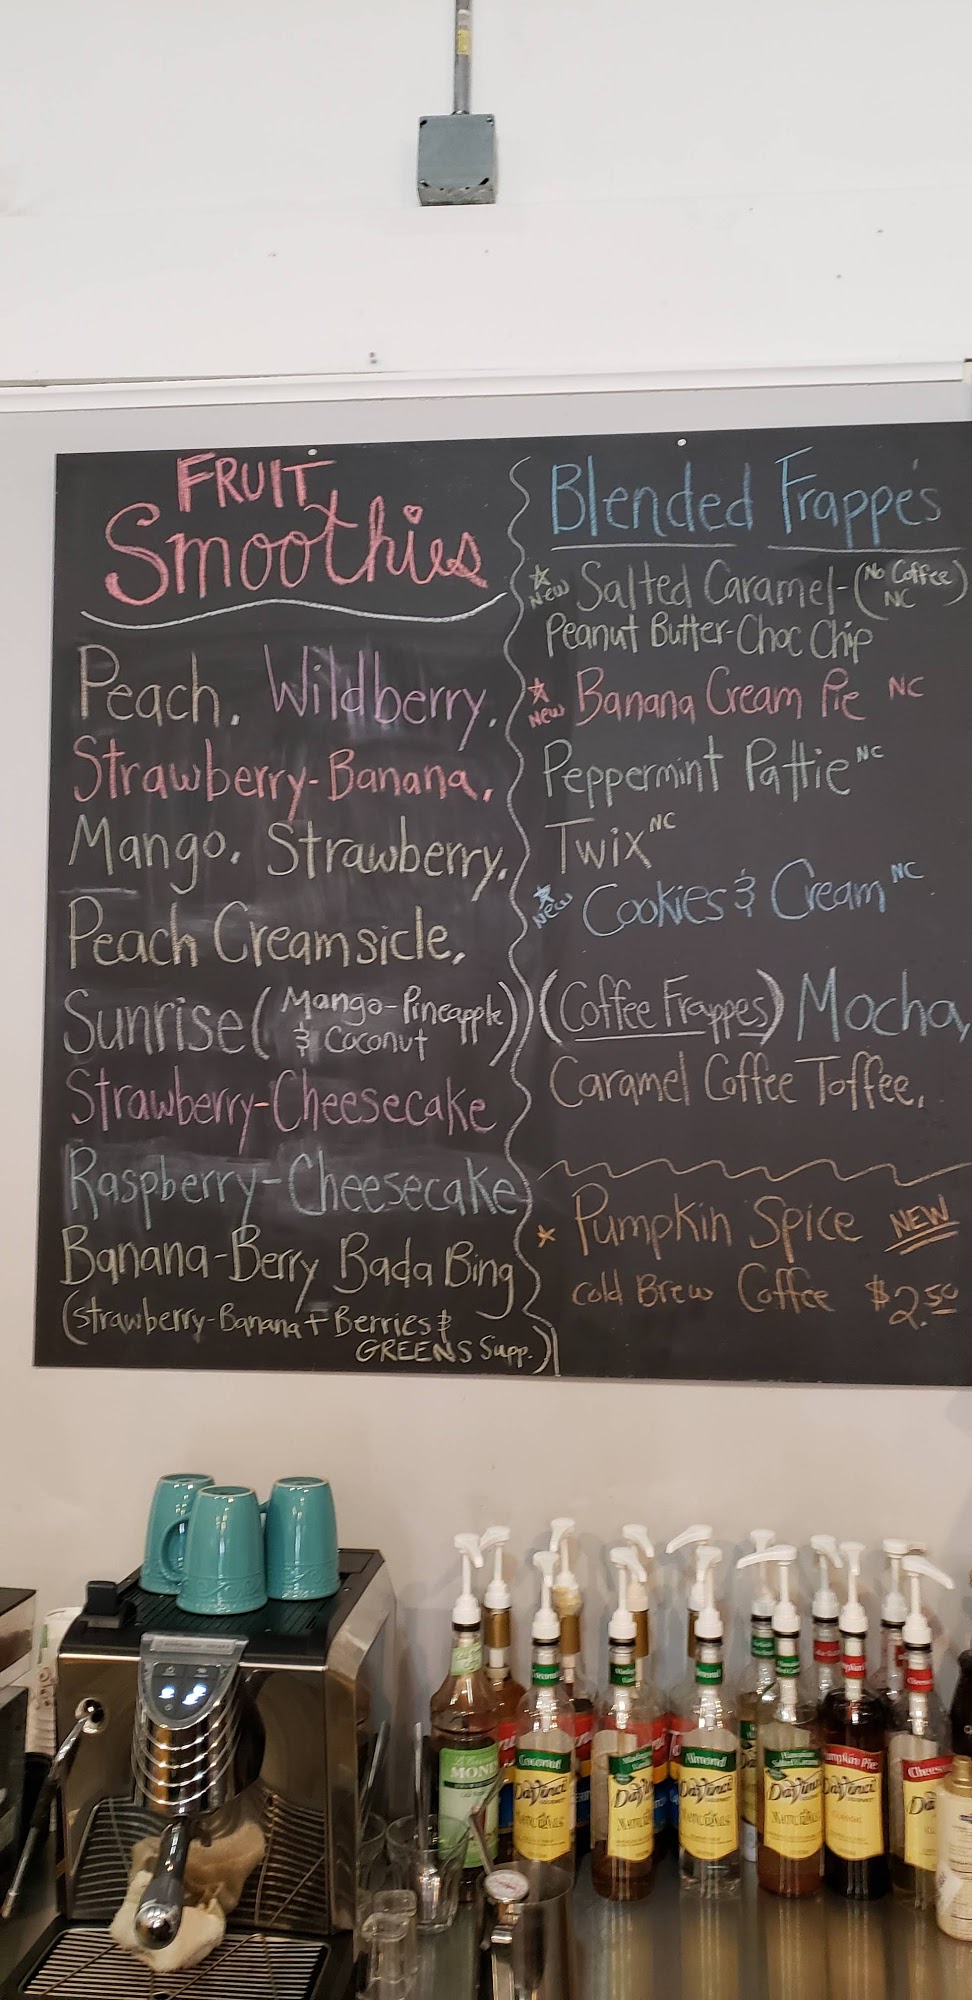 FRUIT
Smoothies
Peach, Wildberry,
Strawberry-Banana,
Mango, Strawberry,
Peach Creamsicle,
Sunrise (Mango-Pineapple
& Coconut)
Strawberry-Cheesecake
Raspberry-Cheesecake
Banana-Berry Bada Bing
(strawberry-Banana + Berries &
GREENS Supp.)
Blended Frappe's
New Salted Caramel-(No Coffee)
NC
Peanut Butter-Choc Chip
New Banana Cream Pie NC
Peppermint Pattie NC
Twix NC
New Cookies & Cream NC
(Coffee Frappes) Mocha,
Caramel Coffee Toffee,
Pumpkin Spice NEW
Cold Brew Coffee $2.50
MON
Coconut
DaVinci
NATURALS
DaVinci
NATURALS
Almond
DaVinci
NATURALS
Hawaiian
Salted Caramel
DaVinci
NATURALS
Pumpkin Pie
DaVinci
Chees
Da